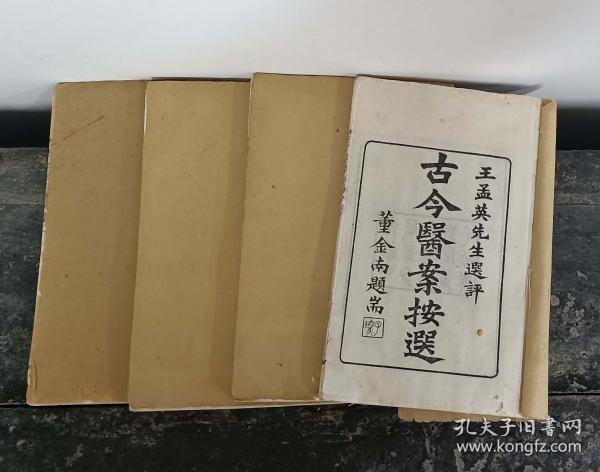 王孟英先生選評
古今醫案按選
董金南題耑
孔夫子旧书网
www.kongfz.com